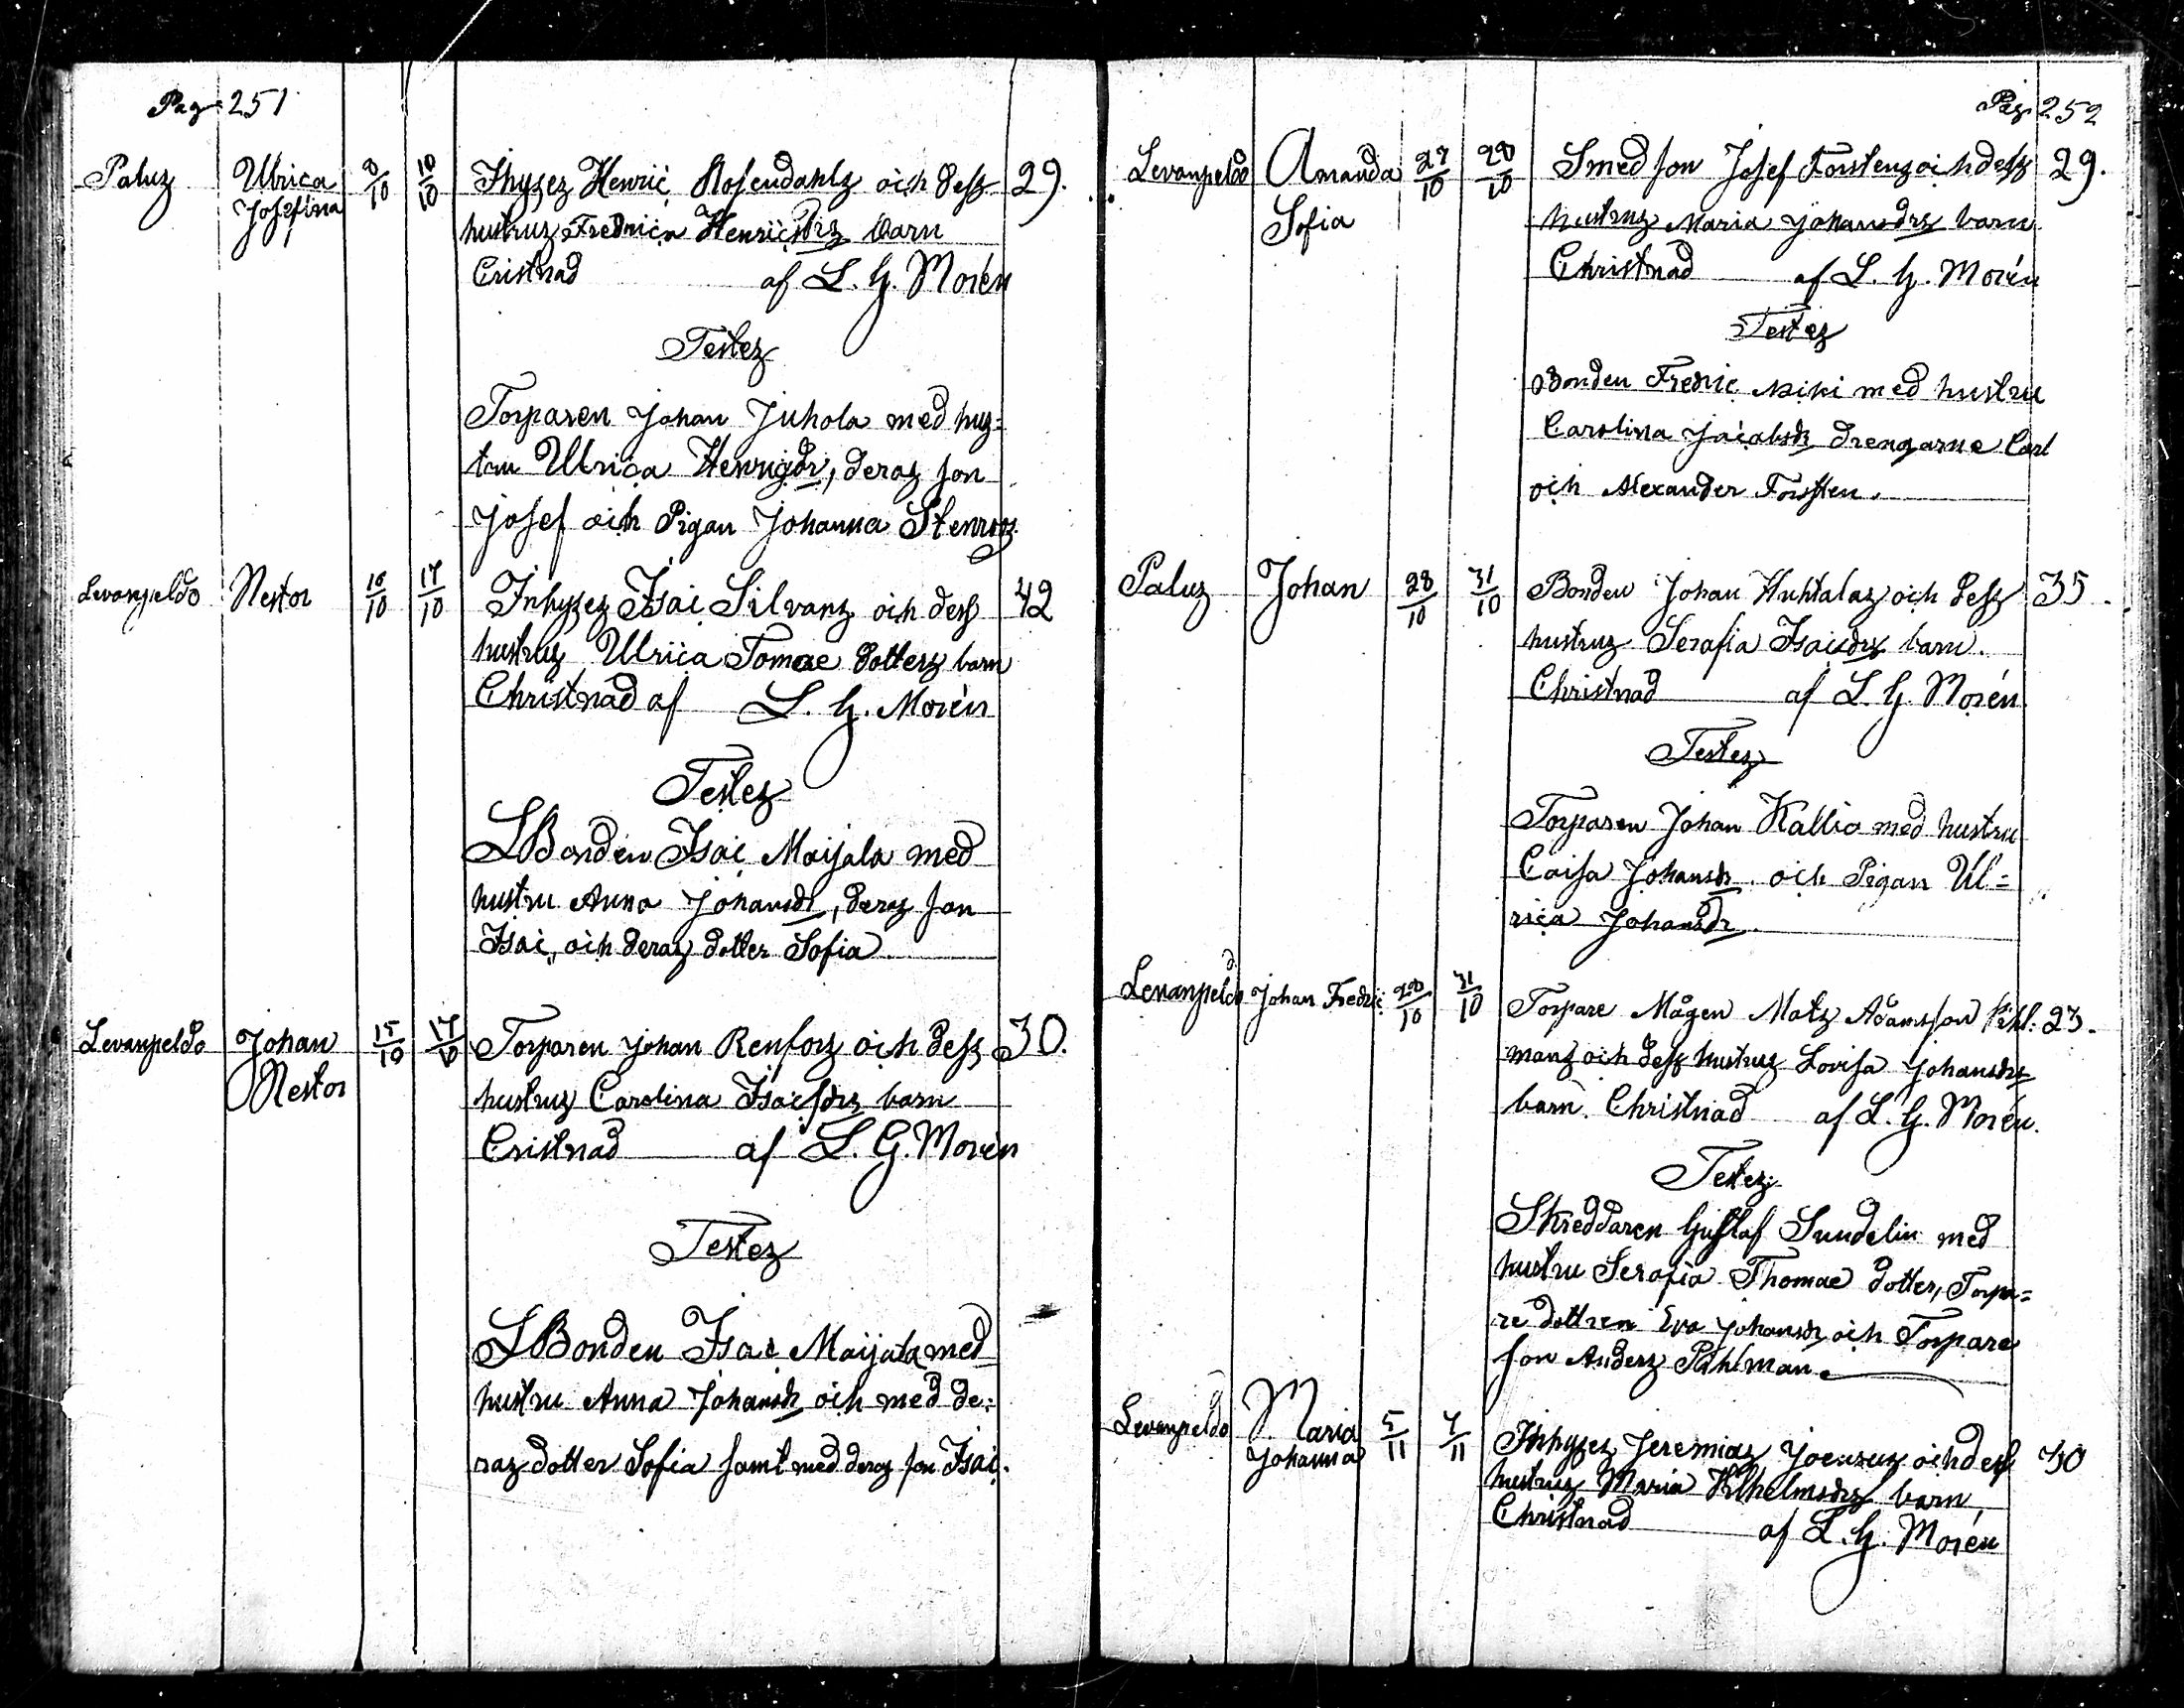 Pag 251
Palus Ulrica 8/10 10/10 Inhyses Henric Rosendahls och dess 29.
Josefina
hustrus Fredrica Henricsdrs barn
Cristnad af L. G. Morén
Testes
Torparen Johan Juhola med hus=
tru Ulrica Henrigdr, deras son
Josef och Pigan Johanna Stenroos
Levanpeldo Nestor 16/10 17/10 Inhyses Isac Silvans och dess 42
hustrus Ulrica Tomae dotters barn
Christnad af L. G. Morén
Testes
LBonden Isac Maijala med
hustru Anna Johansdr, deras son
Isac, och deras dotter Sofia
Levanpeldo Johan 15/10 17/10 Torparen Johan Renfors och dess 30.
Nestor
hustrus Carolina Isacsdrs barn
Cristnad af L. G. Morén
Testes
LBonden Isac Maijala med
hustru Anna Johansdr och med de=
ras dotter Sofia samt med deras son Isac.
Pag. 252
Levanpeldo Amanda 27/10 28/10 Smed son Josef Forstens och dess 29.
Sofia
hustrus Maria Johansdrs barn
Christnad af L. G. Morén
Testes
Bonden Fredric med hustru
Carolina Jacobsdr drengarne Carl
och Alexander Forsten.
Palus Johan 28/10 31/10 Bonden Johan Huhtalas och dess 35.
hustrus Serafia Isacsdrs barn.
Christnad af L. G. Morén
Testes
Torparen Johan Kallio med hustru
Caisa Johansdr och Pigan Ul=
rica Johansdr.
Levanpeldo Johan Fredric 28/10 31/10 Torpare Mågen Mats Adamsson Påhl: 23.
mans och dess hustrus Lovisa Johansdrs
barn. Christnad af L. G. Morén.
Testes
Skreddaren Gustaf Sundelin med
hustru Serafia Thomae dotter, Torpa=
re dottren Eva Johansdr och Torpare
son Anders Påhlman.
Levanpeldo Maria 5/11 7/11 Inhyses Jeremias och dess 30
Johanna
hustrus Maria Vilhelmsdrs barn
Christnad af L. G. Morén